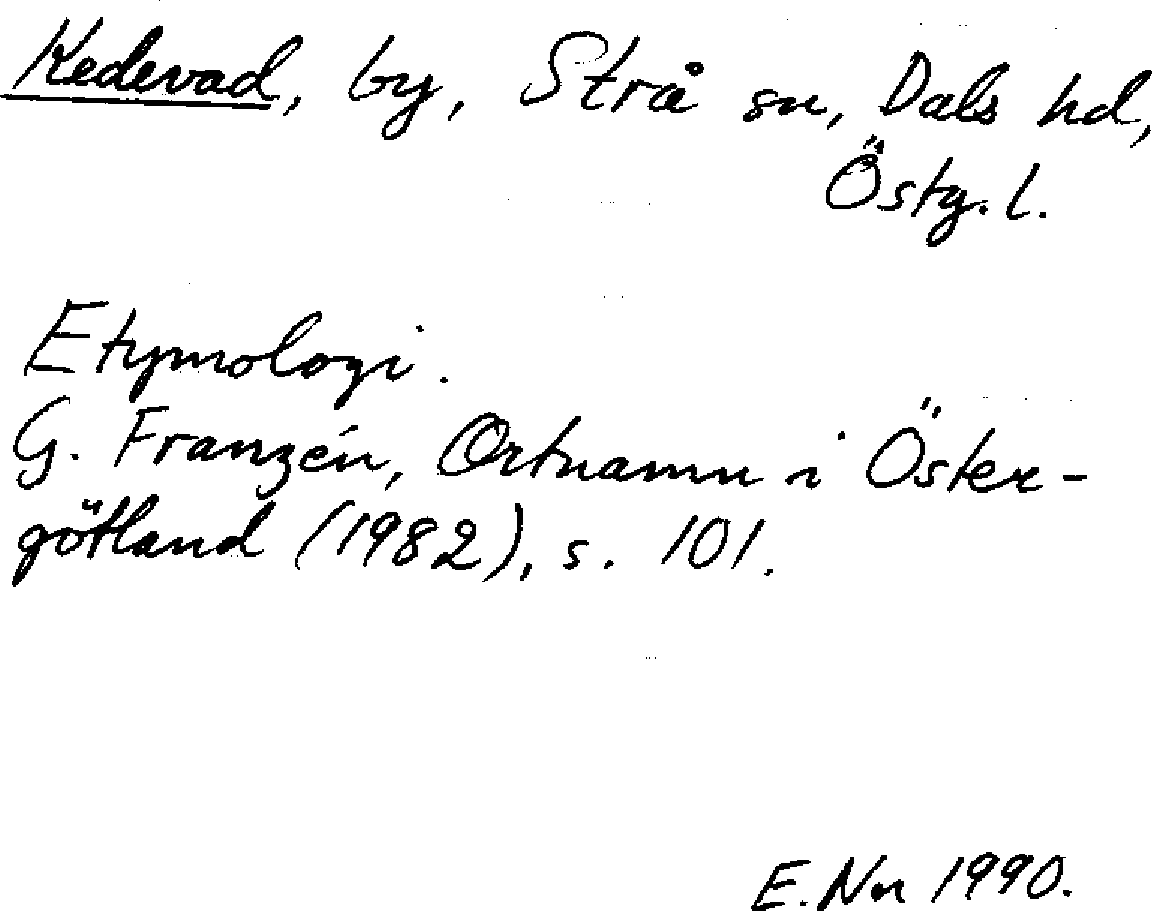 Kedevad, by, Strå sn, Dals hd,
Östg. l.
Etymologi.
G. Franzén, Ortnamn i Öster-
götland (1982), s. 101.
E. Nn 1990.